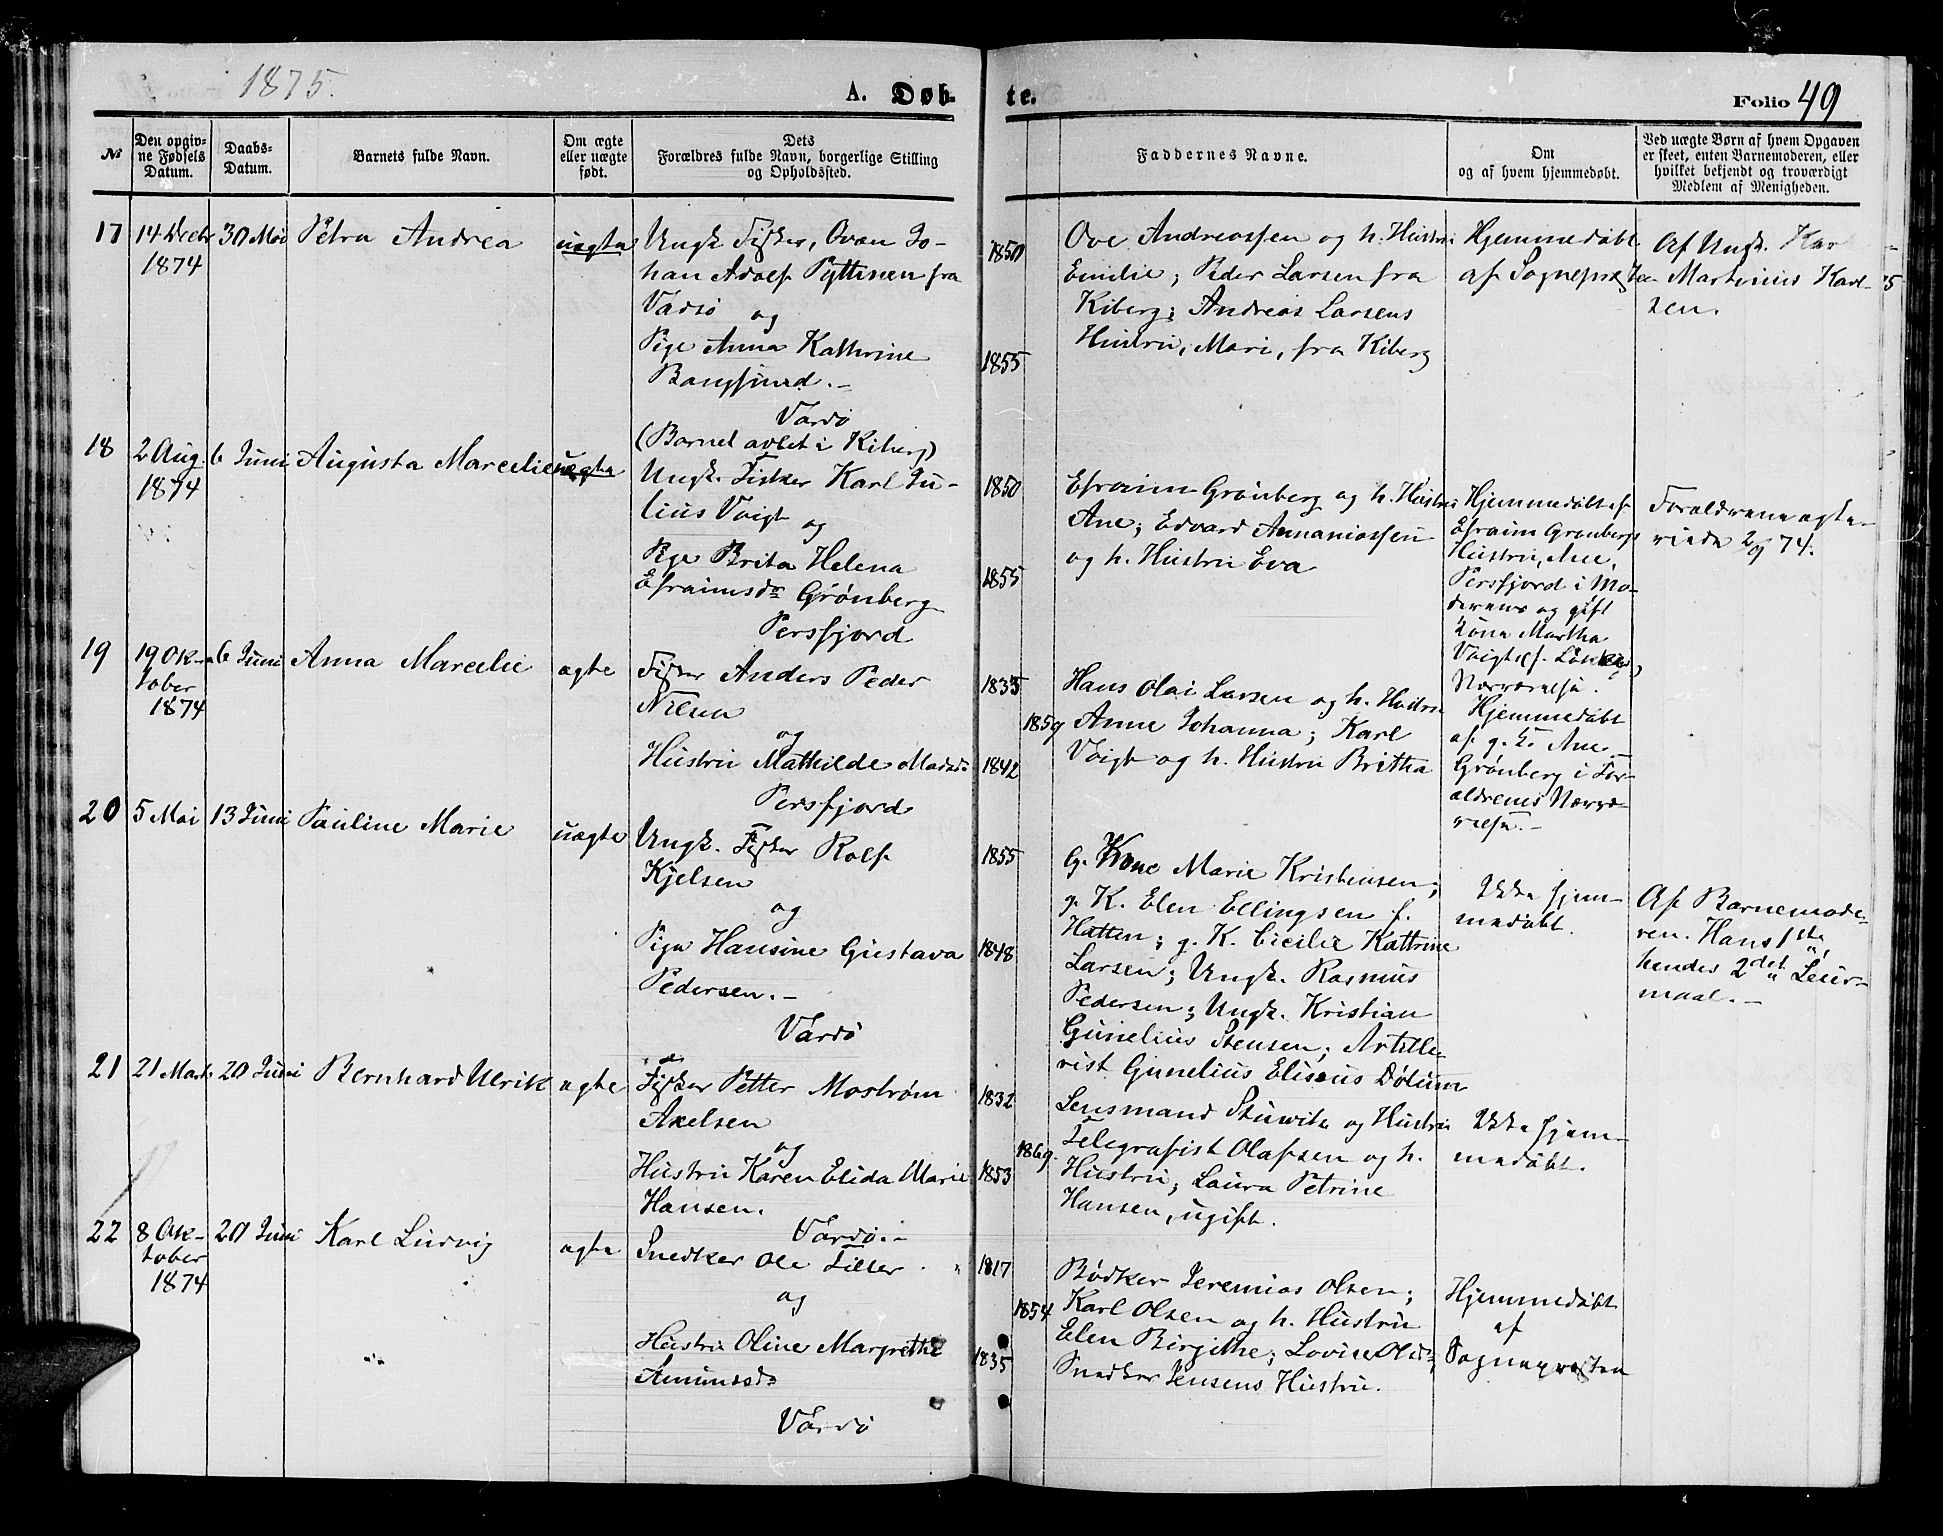 1875.
A. Døb-
te.
Folio 49
№
Den opgiv-
ne Fødsels
Datum.
Daabs-
Datum.
Barnets fulde Navn.
Om ægte
eller uægte
født.
Dets
Forældres fulde Navn, borgerlige Stilling
og Opholdssted.
Faddernes Navne.
Om
og af hvem hjemmedøbt.
Ved uægte Børn af hvem Opgaven
er skeet, enten Barnemoderen, eller
hvilket bekjendt og troværdigt
Medlem af Menigheden.
17
14 Decbr
1874
30 Mai
Petra Andrea
uægte
Ungk. Fisker, Qvæn Jo-
han Adolf Pyttinen fra
Vadsø og
Pige Anna Kathrine
Bangsund.-
Vardø
(Barnet avlet i Kiberg)
1850
1855
Ove Andreassen og h. Hustru
Emilie; Peder Larsen fra
Kiberg; Andreas Larsens
Hustru, Mari, fra Kiberg
Hjemmedøbt
af Sognepresten
Af Ungk. Karl
Martinius Karl-
sen.
18
2 Aug
1874
6 Juni
Augusta Marcelie
uægte
Ungk. Fisker Karl Ju-
lius Voigt og
Pige Brita Helena
Efraimsdr Grønberg
Persfjord
1850
1855
Efraim Grønberg og h. Hustru
Ane; Edvard Annaniassen
og h. Hustru Eva
Hjemmedøbt af
Efraim Grønbergs
Hustru, Ane,
Persfjord i Mo-
derens og gift
Kone Martha
Voigts
Nærværelse.
Forældrene ægte-
viede 2/9 74.
19
19 Ok-
tober
1874
6 Juni
Anna Marcelie
ægte
Fisker Anders Peder
Niena
og
Hustru Mathilde Madsdr
Persfjord
1835
1859
1842
Hans Olai Larsen og h. Hustru
Anne Johanna; Karl
Voigt og h. Hustru Britha
Hjemmedøbt
af g. K. Ane
Grønberg i For-
ældrenes Nærvæ-
relse.-
20
5 Mai
13 Juni
Pauline Marie
uægte
Ungk. Fisker Rolf
Kjelsen
og
Pige Hansine Gustava
Pedersen.-
Vardø
1855
1848
G. Kone Marie Kristensen;
g. K. Elen Ellingsen f.
Hatten; g. K. Cicilie Kattrine
Larsen; Ungk. Rasmus
Pedersen; Ungk. Kristian
Gunelius Stensen; Artille-
rist Gunelius Eliseus Dølum
Ikke hjem-
medøbt.
Af Barnemode-
ren. Hans 1ste,
hendes 2det Leier-
maal.-
21
21 Marts
20 Juni
Bernhard Ulrik
ægte
Fisker Petter Mostrøm
Axelsen
og
Hustru Karen Elida Marie
Hansen.
Vardø.-
1832
1869.
1853
Lensmand Stuwitz og Hustru
Telegrafist Olafsen og h.
Hustru; Laura Petrine
Hansen, ugift.
Ikke hjem-
medøbt.
22
8 Ok-
tober
1874
20 Juni
Karl Ludvig
ægte
Snedker Ole Tiller
og
Hustru Oline Margrethe
Amundsdr
Vardø
1817
1854
1835
Bødker Jeremias Olsen;
Karl Olsen og h. Hustru
Elen Birgithe; Lovise Olsdr;
Snedker Jensens Hustru.
Hjemmedøbt
af
Sognepresten